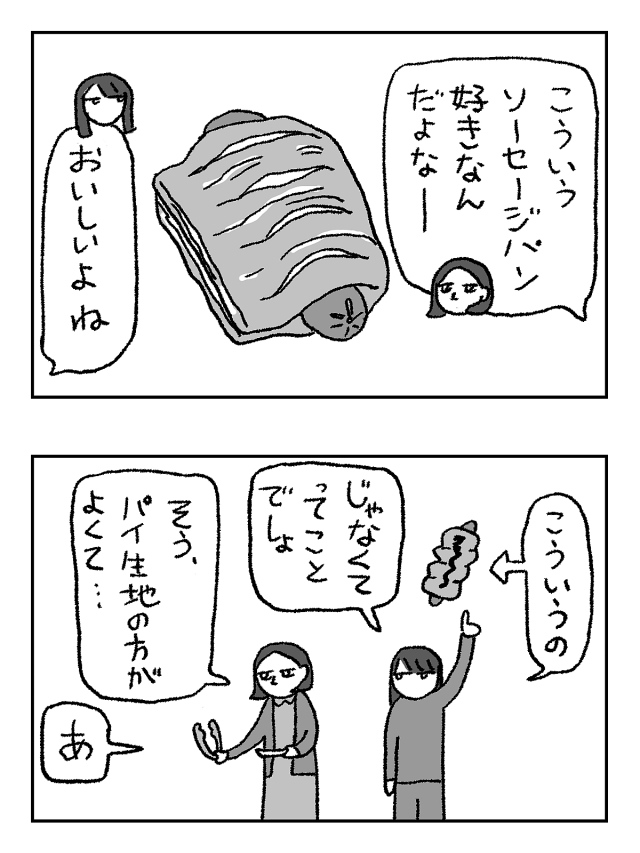 こういう
ソーセージパン
好きなん
だよなー
おいしいよね
こういうの
じゃなくて
ってこと
でしょ
そう、
パイ生地の方が
よくて…
あ